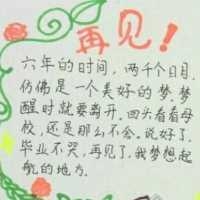 再见!
六年的时间,两千个日月.
仿佛是一个美好的梦.梦
醒时就要离开.回头看看母
校,还是那么不会.说好了
毕业不哭,再见了.我梦想起
航的地方.